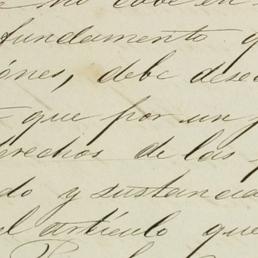 no cabe en
fundamento
iónes, debe dese
que por un
derechos de las
do y sustancia
el artículo que